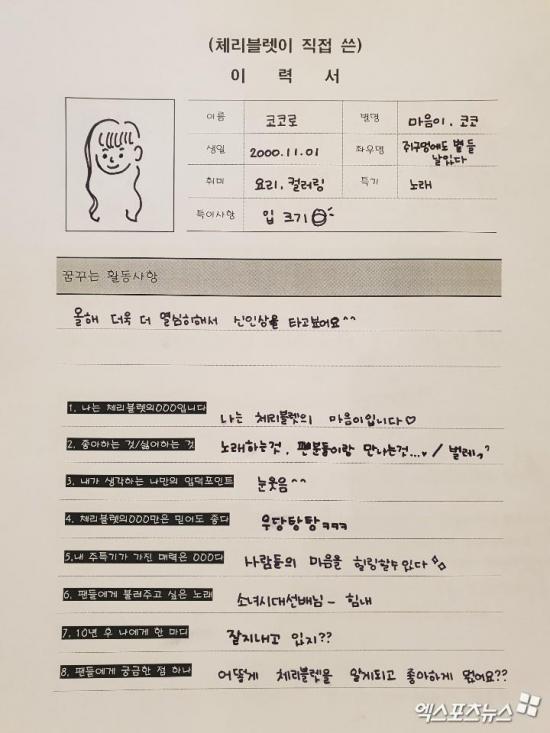 (체리블렛이 직접 쓴)
이 력 서
이름 코코로 별명 마음이. 코코
생일 2000.11.01 좌우명 쥐구멍에도 볕 들
날 있다
취미 요리, 컬러링 특기 노래
특이사항 입 크기
꿈꾸는 활동사항
올해 더욱 더 열심히해서 신인상을 타고싶어요^^
1. 나는 체리블렛의OOO입니다 나는 체리블렛의 마음이입니다♡
2. 좋아하는 것/싫어하는 것 노래하는것, 팬분들이랑 만나는것...♥ / 벌레,,?
3. 내가 생각하는 나만의 입덕포인트 눈웃음^^
4. 체리블렛의OOO만은 믿어도 좋다 우당탕탕 ㅋㅋㅋ
5.내 주특기가 가진 매력은 OOO다 사람들의 마음을 힐링할수있다
6. 팬들에게 불러주고 싶은 노래 소녀시대선배님 - 힘내
7. 10년 후 나에게 한 마디 잘지내고 있지??
8. 팬들에게 궁금한 점 하나 어떻게 체리블렛을 알게되고 좋아하게 됐어요??
엑스포츠뉴스